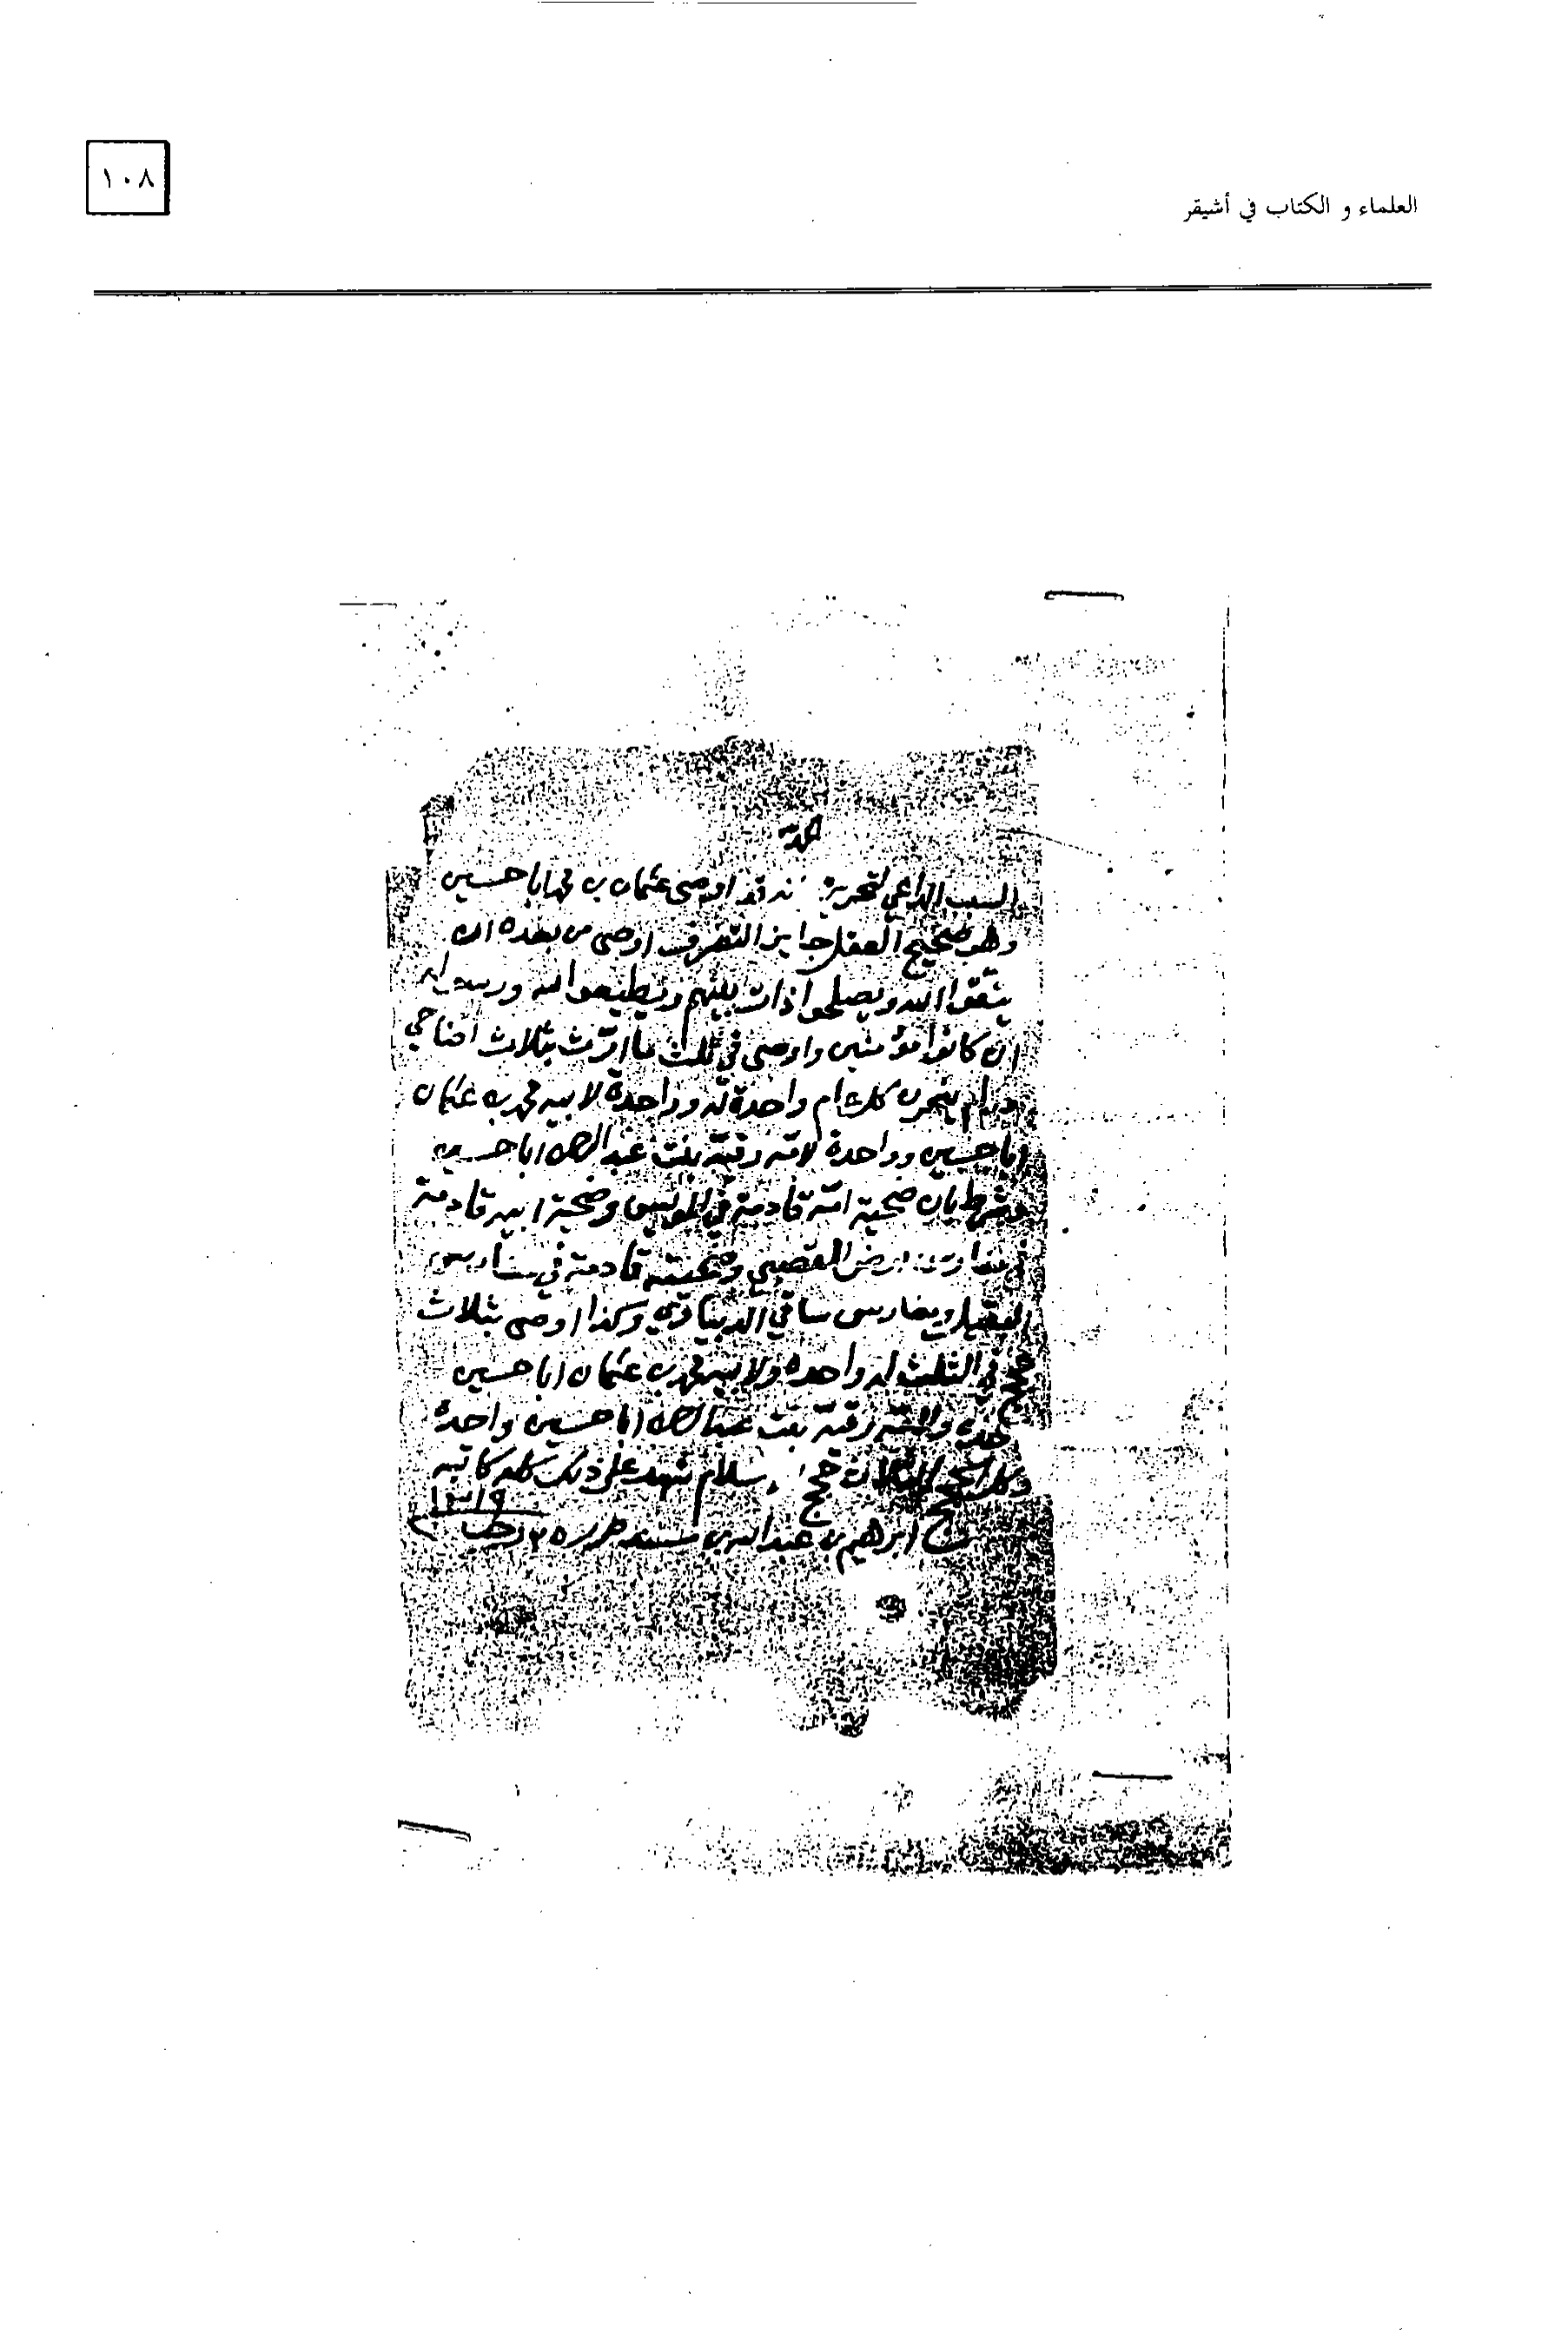 ١٠٨
العلماء و الكتاب في أشيقر
الحمد لله
السبب الداعي لتحريره انه قد اوصى عثمان بن محمد اباحسين
وهو صحيح العقل جايز التصرف اوصى من بعده ان
يتقوا الله ويصلحوا ذات بينهم ويطيعوا الله ورسوله
ان كانوا مؤمنين واوصى في ثلث ما ورث بثلاث اضاحي
دوام ينحرن كل عام واحدة له وواحدة لابيه محمد بن عثمان
اباحسين وواحدة لامه رقية بنت عبدالرحمن اباحسين
وشرط بان ضحية امه قادمة في وضحية ابيه قادمة
في ارض القصيبي وضحيته قادمة في مغارس
العقيل ومغارس ساقي وكذا اوصى بثلاث
حجج في الثلث له واحده ولابيه محمد بن عثمان اباحسين
حده ولامه رقية بنت عبدالرحمن اباحسين واحده
الثلاث حجج سلام شهد على ذلك كله كاتبه
ابراهيم بن عبدالله بن حرر ٢٥ رجب
١٣١٩